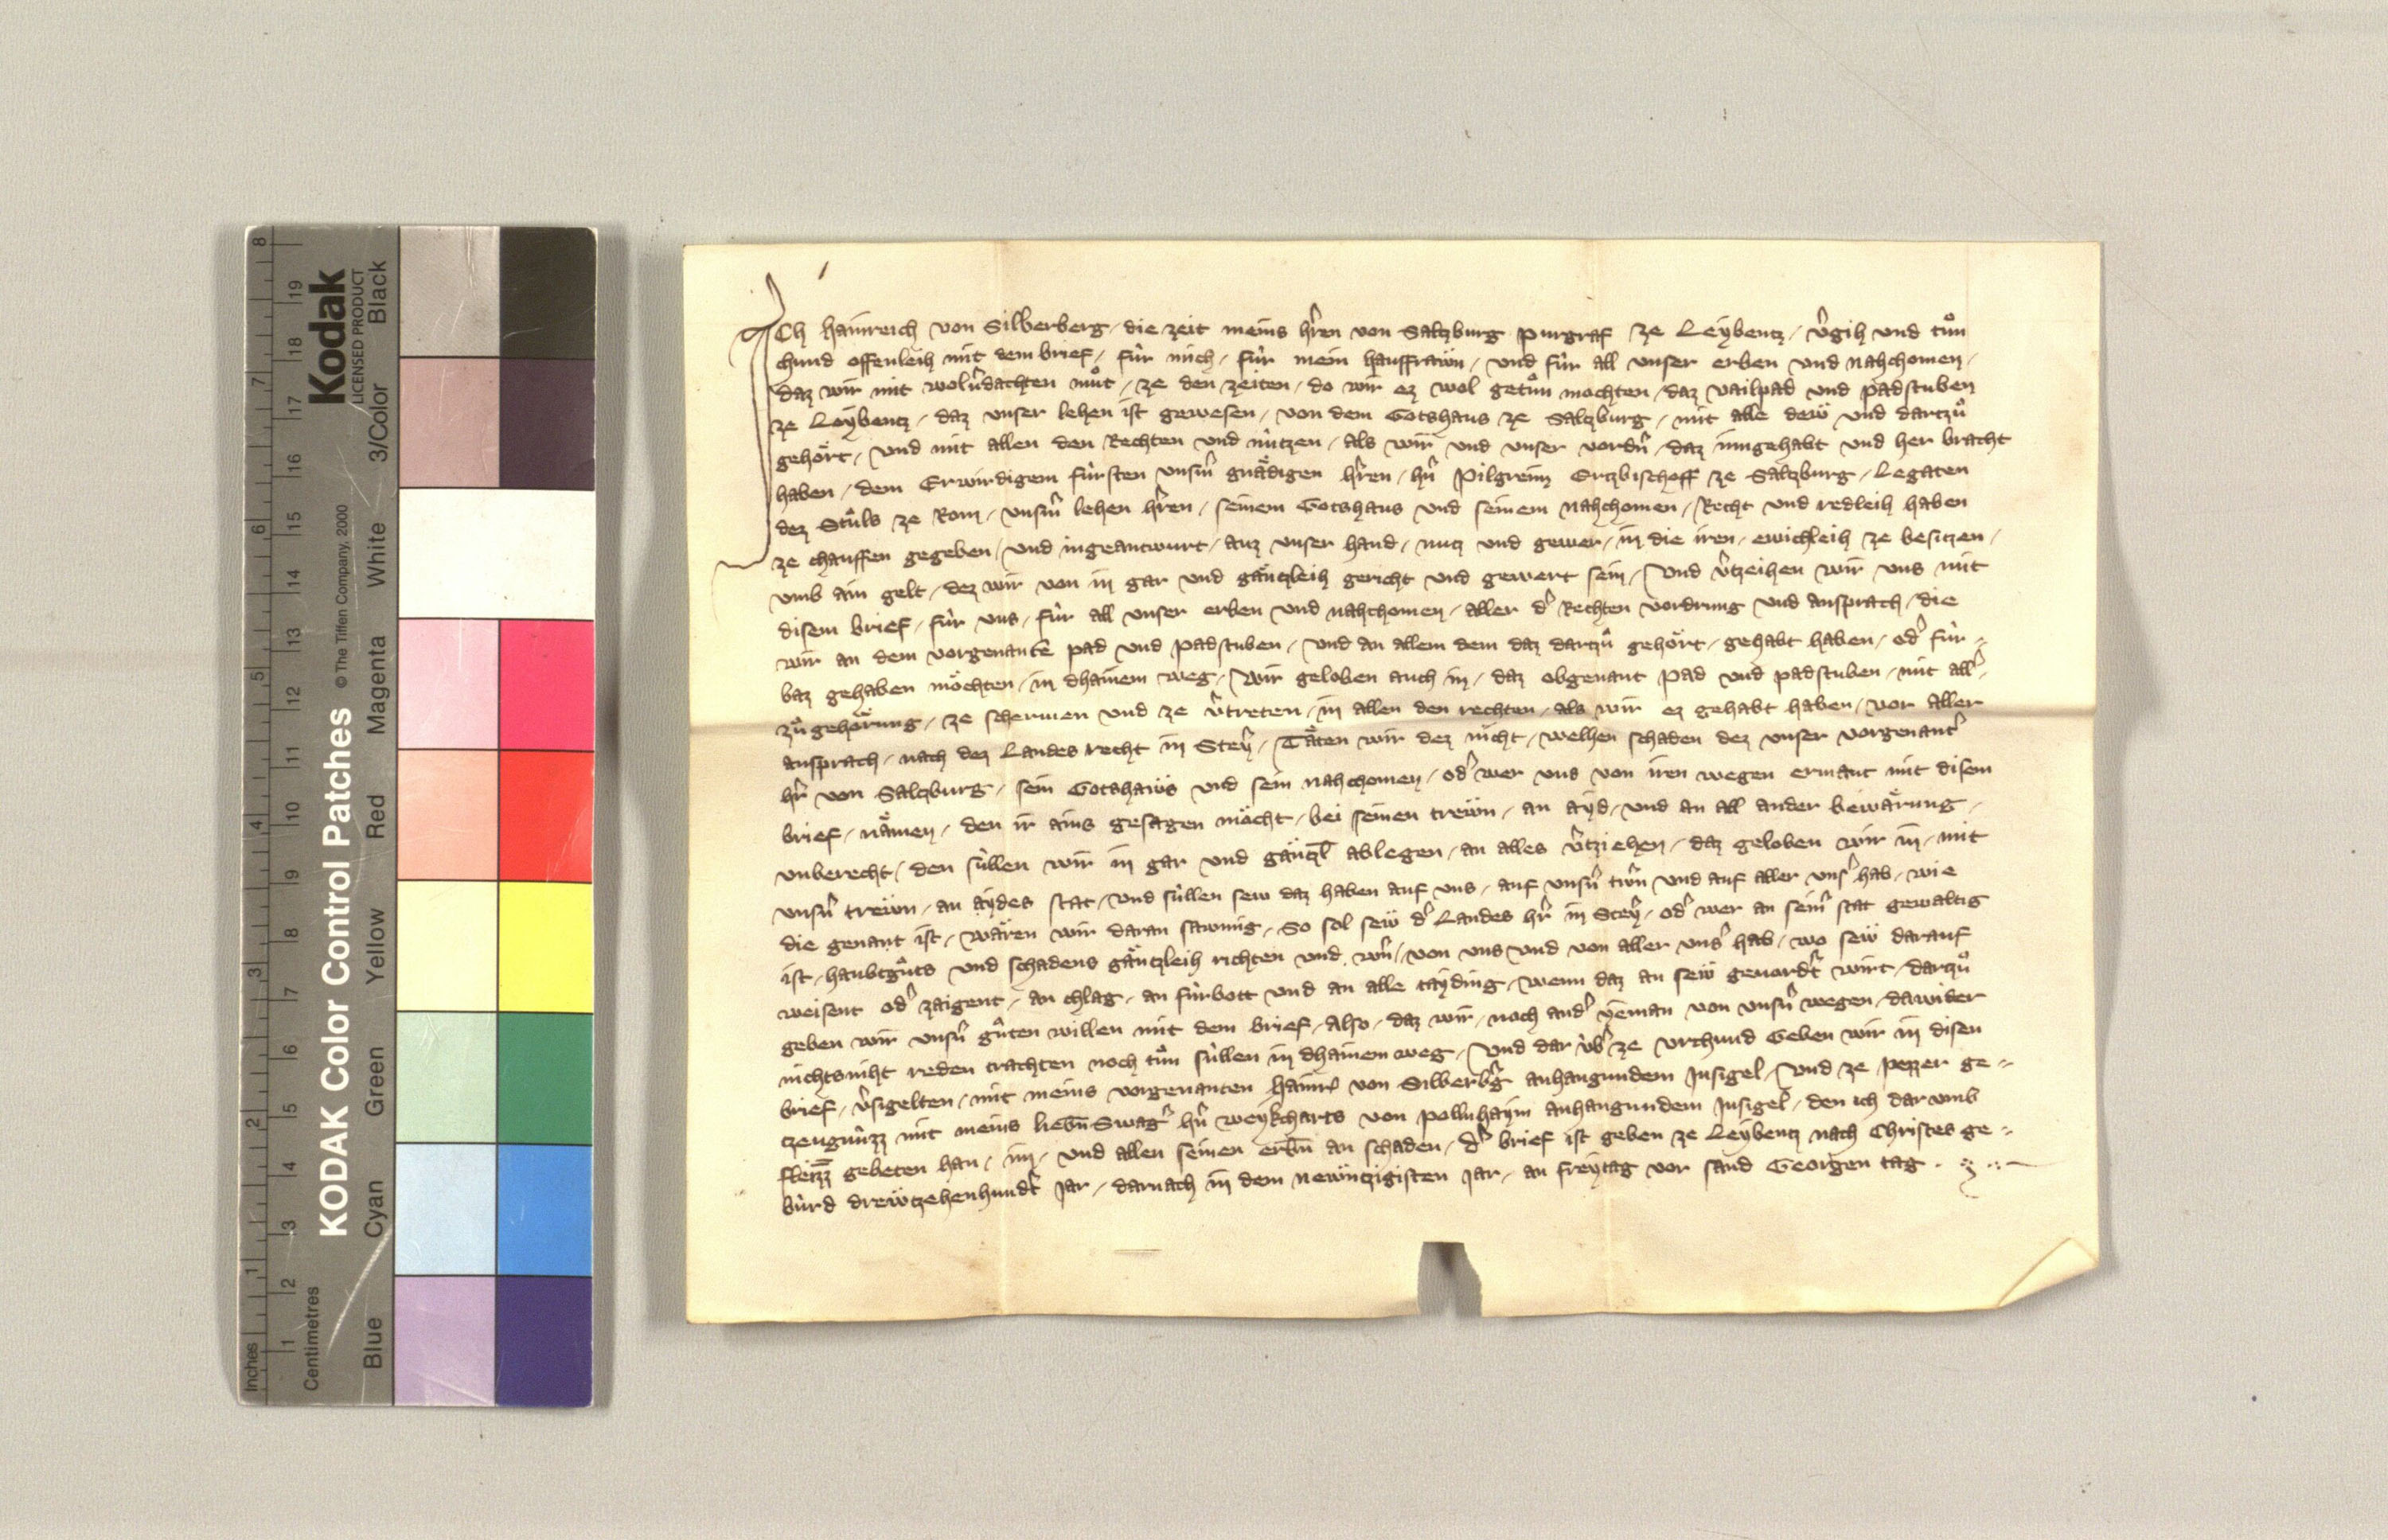 Kodak
LICENSED PRODUCT
KODAK Color Control Patches © The Tiffen Company, 2000
Blue Cyan Green Yellow Red Magenta White 3/Color Black
Inches 1 2 3 4 5 6 7 8
Centimetres 1 2 3 4 5 6 7 8 9 10 11 12 13 14 15 16 17 18 19
ICh Hainreich von Silberberg / die zeit meins h̑ren von Saltzburg purgraf ze Leybentz / v̑gih vnd tůn
chund offenleih mit dem brief / fůr mich / fůr mein hausfrawn / vnd fůr all vnser erben vnd nahchomen /
daz wir mit wolv̑dachten můt / ze den zeiten / do wir ez wol getůn mochten / daz vailpad vnd padstuben
ze Leybentz / daz vnser lehen ist gewesen / von dem Gotshaus ze Saltzburg / mit alle dew vnd dartzů
gehört / vnd mit allen den Rechten vnd nůtzen / als wir vnd vnser vordn̑ / daz inngehabt vnd her bracht
haben / dem Erwirdigem fůrsten vnsm̑ gnädigen h̑ren / hn̑ Pilgreim Ertzbischoff ze Saltzburg / Legaten
dez Stůls ze Rom / vnsm̑ lehen h̑ren / seinem Gotshaus vnd seinem nahchomen / Recht vnd redleih haben
ze chauffen gegeben / vnd ingeantwurt / auz vnser hand / nutz vnd gewer / in die iren / ewichleih ze besitzen /
vmb ain gelt / dez wir von in gar vnd gäntzleih gericht vnd gewert sein / Vnd v̑tzeihen wir vns mit
disem brief / fůr vns / fůr all vnser erben vnd nahchomen / aller d̑ Rechten vordrung vnd ansprach / die
wir an dem vorgenantē pad vnd padstuben / vnd an allem dem daz dartzů gehört / gehabt haben / od̑ fůr-
baz gehaben möchten / in dhainem weg / Wir geloben auch in / daz obgenant pad vnd padstuben / mit all̑
zůgehörung / ze schermen vnd ze v̑treten / in allen den rechten / als wir ez gehabt haben / vor aller
ansprach / nach dez Landes recht in Steyȓ / Täten wir dez nicht / welhen schaden dez vnser vorgenant̑
hȓ von Saltzburg / sein Gotshaws vnd sein nahchomen / od̑ wer vns von iren wegen ermant mit disem
brief / nämen / den ir ains gesagen möcht / bei seinen trewn / an ayd / vnd an all ander bewärung /
vnberecht / den sůllen wir in gar vnd gäntzl̄ ablegen / an alles v̑tziehen / daz geloben wir in / mit
vnsn̑ trewn / an aydes stat / vnd sůllen sew daz haben auf vns / auf vnsn̑ trwn̑ vnd auf aller vns̑ hab / wie
die genant ist / wären wir daran sawmig / So sol sew d̑ Landes hȓ in Steyȓ / od̑ wer an seinȓ stat gewaltig
ist / haubtgůts vnd schadens gäntzleih richten vnd wn̑ / von vns vnd von aller vns̑ hab / wo sew darauf
weisent od̑ zaigent / an chlag / an fůrbott vnd an alle tayding / wenn daz an sew geuordt̑ wirt / dartzů
geben wir vnsn̑ gůten willen mit dem brief / Also / daz wir / noch and̑ yeman von vnsn̑ wegen / dawider
nichtsniht reden trachten noch tůn sůllen in dhainem weg / Vnd dar vb̑ ze vrchund Geben wir in disen
brief / v̑sigelten / mit meins vorgenanten Hainȓ von Silberbg̑ anhangundem Insigel / Vnd ze pezzer ge-
tzeugnůzz mit meins liebn̄ Swag̑ hn̑ weykcharts von Pollnhaym anhangundem Insigel / den ich dar vmb
fleizz̄ gebeten han / im / vnd allen seinen erbn̄ an schaden / d̑ brief ist geben ze Leybentz nach Christes ge-
bůrd drewtzehenhundt̑ Jar / darnach in dem newntzigisten Jar / an freytag vor sand Georgen tag .